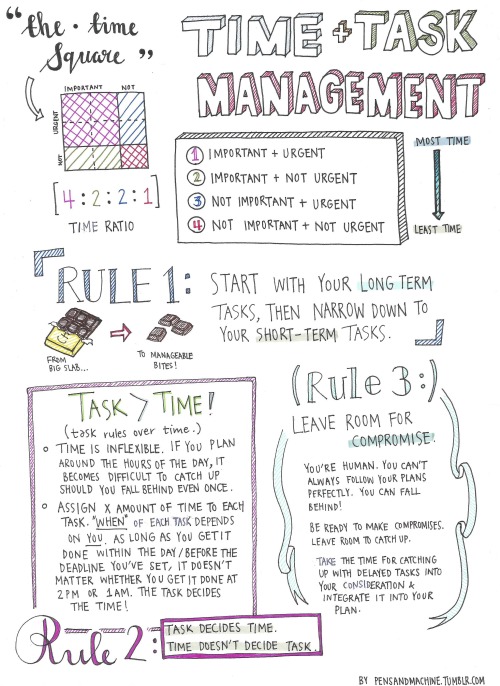 “the • time
Square”
IMPORTANT NOT
URGENT
NOT
[4:2:2:1]
TIME RATIO
TIME + TASK
MANAGEMENT
1 IMPORTANT + URGENT
2 IMPORTANT + NOT URGENT
3 NOT IMPORTANT + URGENT
4 NOT IMPORTANT + NOT URGENT
MOST TIME
LEAST TIME
RULE 1:
START WITH YOUR LONG TERM
TASKS, THEN NARROW DOWN TO
YOUR SHORT-TERM TASKS.
FROM
BIG SLAB...
TO MANAGEABLE
BITES!
TASK > TIME!
(task rules over time.)
TIME IS INFLEXIBLE. IF YOU PLAN
AROUND THE HOURS OF THE DAY, IT
BECOMES DIFFICULT TO CATCH UP
SHOULD YOU FALL BEHIND EVEN ONCE.
ASSIGN X AMOUNT OF TIME TO EACH
TASK. "WHEN" OF EACH TASK DEPENDS
ON YOU. AS LONG AS YOU GET IT
DONE WITHIN THE DAY/BEFORE THE
DEADLINE YOU'VE SET, IT DOESN'T
MATTER WHETHER YOU GET IT DONE AT
2PM OR 1AM. THE TASK DECIDES
THE TIME!
Rule 2:
TASK DECIDES TIME.
TIME DOESN'T DECIDE TASK.
(Rule 3:)
LEAVE ROOM FOR
COMPROMISE.
YOU'RE HUMAN. YOU CAN'T
ALWAYS FOLLOW YOUR PLANS
PERFECTLY. YOU CAN FALL
BEHIND!
BE READY TO MAKE COMPROMISES.
LEAVE ROOM TO CATCH UP.
TAKE THE TIME FOR CATCHING
UP WITH DELAYED TASKS INTO
YOUR CONSIDERATION &
INTEGRATE IT INTO YOUR
PLAN.
BY PENSANDMACHINE.TUMBLR.COM